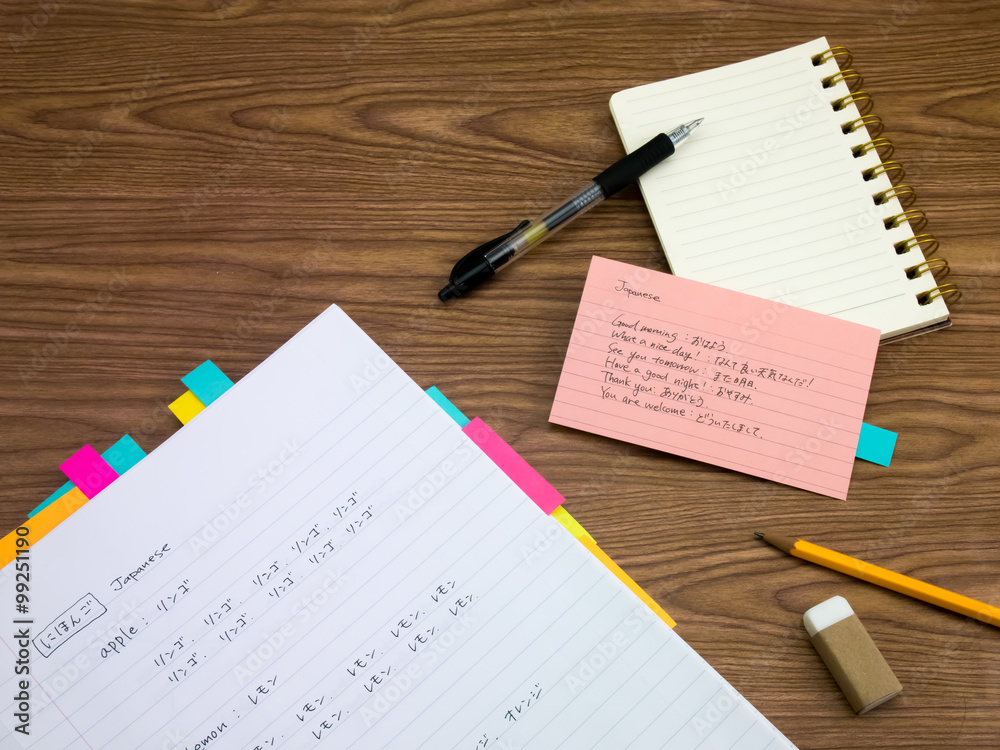 Japanese
Good morning : おはよう
What a nice day! : なんて良い天気なんだ!
See you tomorrow : また明日.
Have a good night! : おやすみ.
Thank you : ありがとう.
You are welcome : どういたしまして.
にほんご Japanese
apple : リンゴ
リンゴ. リンゴ. リンゴ. リンゴ. リンゴ
リンゴ. リンゴ. リンゴ. リンゴ. リンゴ
lemon : レモン
レモン. レモン. レモン. レモン. レモン
レモン. レモン. レモン. レモン
オレンジ
Adobe Stock | #99251190